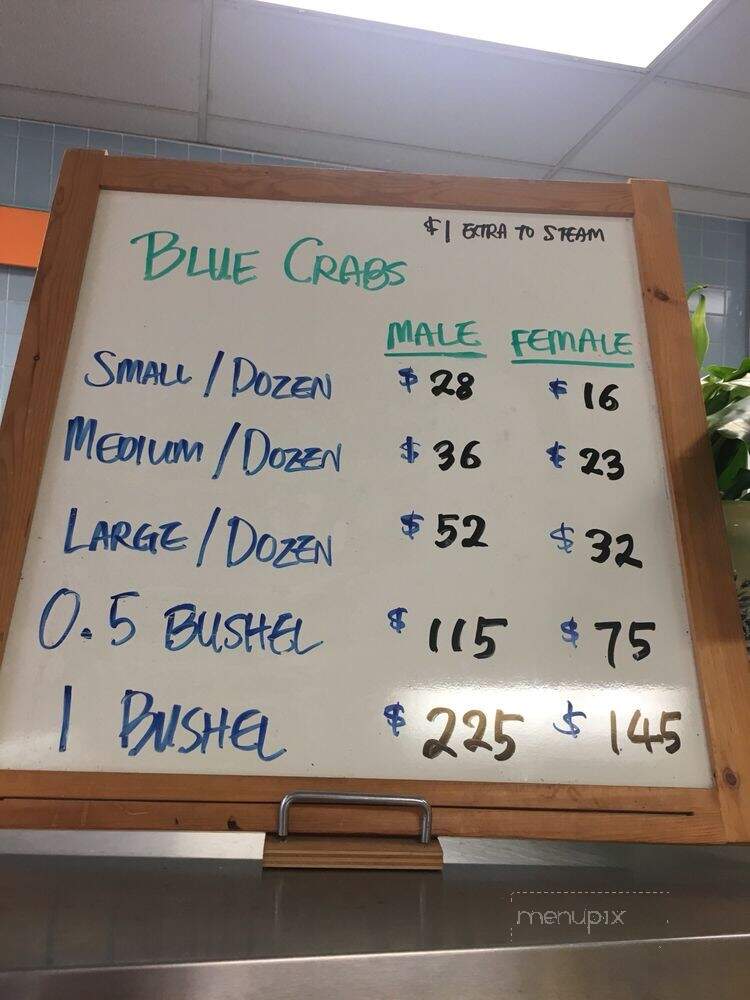 $1 EXTRA TO STEAM
BLUE CRABS
MALE FEMALE
SMALL/DOZEN $28 $16
MEDIUM/DOZEN $36 $23
LARGE/DOZEN $52 $32
0.5 BUSHEL $115 $75
1 BUSHEL $225 $145
menupix